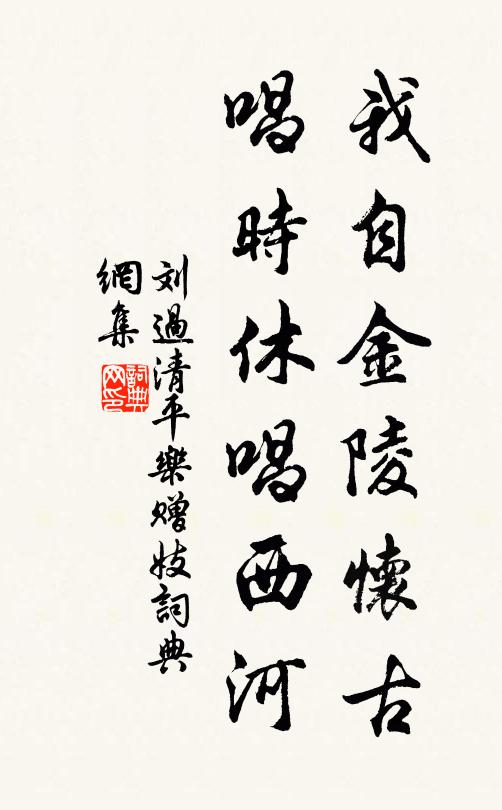 我自金陵懷古
唱時休唱西河
刘過清平樂赠妓詞典
網集
詞典
网印